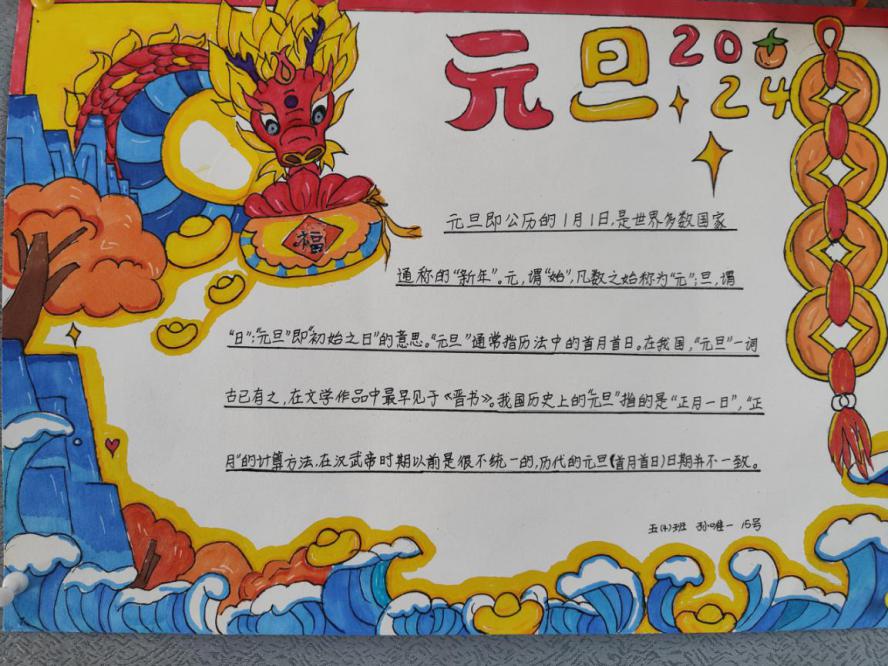 元旦 20
24
福
元旦即公历的1月1日,是世界多数国家
通称的“新年”。元,谓“始”,凡数之始称为“元”;旦,谓
“日”;“元旦”即“初始之日”的意思。“元旦”通常指历法中的首月首日。在我国,“元旦”一词
古已有之,在文学作品中最早见于《晋书》。我国历史上的“元旦”指的是“正月一日”,“正
月”的计算方法,在汉武帝时期以前是很不统一的,历代的元旦(首月首日)日期并不一致。
五(4)班 孙唯一 15号